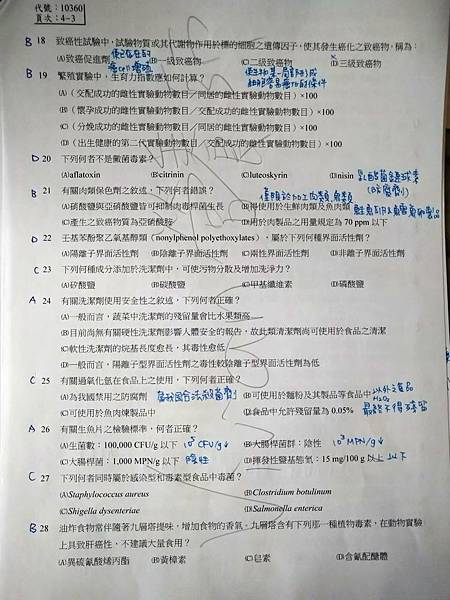 代號：10360
頁次：4-3
B 18 致癌性試驗中，試驗物質或其代謝物作用於標的細胞之遺傳因子，使其發生癌化之致癌物，稱為：
(A)致癌促進劑 (B)一級致癌物 (C)二級致癌物 (D)三級致癌物
B 19 繁殖實驗中，生育力指數應如何計算？
(A)（交配成功的雌性實驗動物數目／同居的雌性實驗動物數目）×100
(B)（懷孕成功的雌性實驗動物數目／交配成功的雌性實驗動物數目）×100
(C)（分娩成功的雌性實驗動物數目／同居的雌性實驗動物數目）×100
(D)（出生健康的第二代實驗動物數目／交配成功的雌性實驗動物數目）×100
D 20 下列何者不是黴菌毒素？
(A)aflatoxin (B)citrinin (C)luteoskyrin (D)nisin 乳酸菌
(防腐劑)
B 21 有關肉類保色劑之敘述，下列何者錯誤？
(A)硝酸鹽與亞硝酸鹽皆可抑制肉毒桿菌生長 (B)得使用於生鮮肉類及魚肉類
(C)產生之致癌物質為亞硝酸胺 (D)用於肉製品之用量規定為 70 ppm 以下
D 22 壬基苯酚聚乙氧基醇類（nonylphenol polyethoxylates），屬於下列何種界面活性劑？
(A)陽離子界面活性劑 (B)陰離子界面活性劑 (C)兩性界面活性劑 (D)非離子界面活性劑
C 23 下列何種成分添加於洗潔劑中，可使污物分散及增加洗淨力？
(A)矽酸鹽 (B)碳酸鹽 (C)甲基纖維素 (D)磷酸鹽
A 24 有關洗潔劑使用安全性之敘述，下列何者正確？
(A)一般而言，蔬菜中洗潔劑的殘留量會比水果類高
(B)目前尚無有關硬性洗潔劑影響人體安全的報告，故此類清潔劑尚可使用於食品之清潔
(C)軟性洗潔劑的烷基長度愈長，其毒性愈低
(D)一般而言，陽離子型界面活性劑之毒性較陰離子型界面活性劑為低
C 25 有關過氧化氫在食品上之使用，下列何者正確？
(A)為我國禁用之防腐劑 為我國合法殺菌劑 (B)可使用於麵粉及其製品等食品中 以外之食品
H₂O₂
(C)可使用於魚肉煉製品中 (D)食品中允許殘留量為 0.05% 最終不得殘留
A 26 有關生魚片之檢驗標準，何者正確？
(A)生菌數：100,000 CFU/g 以下 10⁵ CFU/g↓ (B)大腸桿菌群：陰性 10³ MPN/g↓
(C)大腸桿菌：1,000 MPN/g 以下 陰性 (D)揮發性鹽基態氮：15 mg/100 g 以上 以下
C 27 下列何者同時屬於感染型和毒素型食品中毒菌？
(A)Staphylococcus aureus (B)Clostridium botulinum
(C)Shigella dysenteriae (D)Salmonella enterica
B 28 油炸食物常伴隨著九層塔提味，增加食物的香氣。九層塔含有下列那一種植物毒素，在動物實驗
上具致肝癌性，不建議大量食用？
(A)異硫氰酸烯丙酯 (B)黃樟素 (C)皂素 (D)含氰配醣體